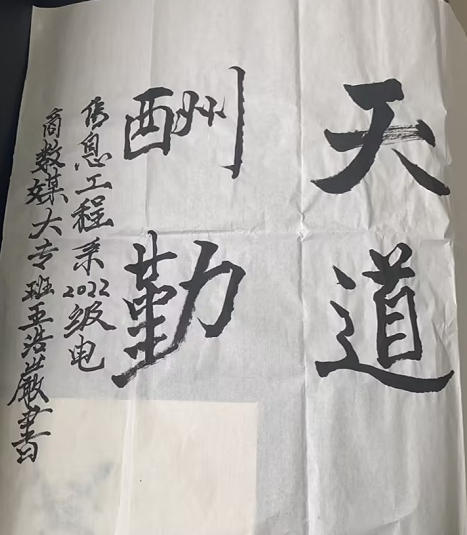 天道
酬勤
信息工程系2022级电
商数媒大专班王浩書